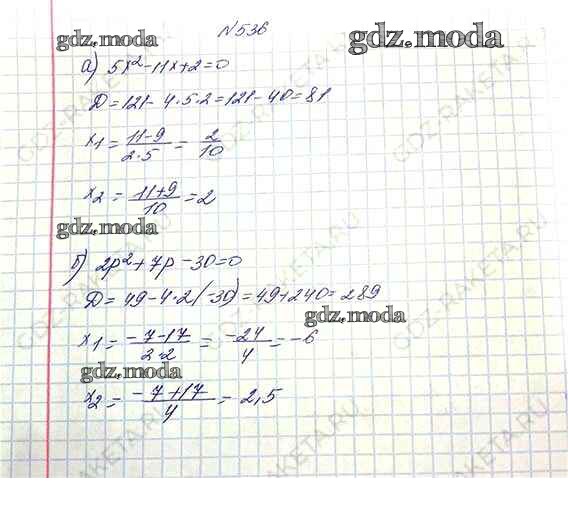 №536
gdz.moda
gdz.moda
а) 5x²-11x+2=0
D=121-4·5·2=121-40=81
x₁ = (11-9)/(2·5) = 2/10
x₂ = (11+9)/10 = 2
gdz.moda
б) 2p²+7p-30=0
D=49-4·2(-30)=49+240=289
gdz.moda
x₁ = (-7-17)/(2·2) = -24/4 = -6
gdz.moda
x₂ = (-7+17)/4 = 2,5
GDZ-RAKETA.RU
GDZ-RAKETA.RU
GDZ-RAKETA.RU
GDZ-RAKETA.RU